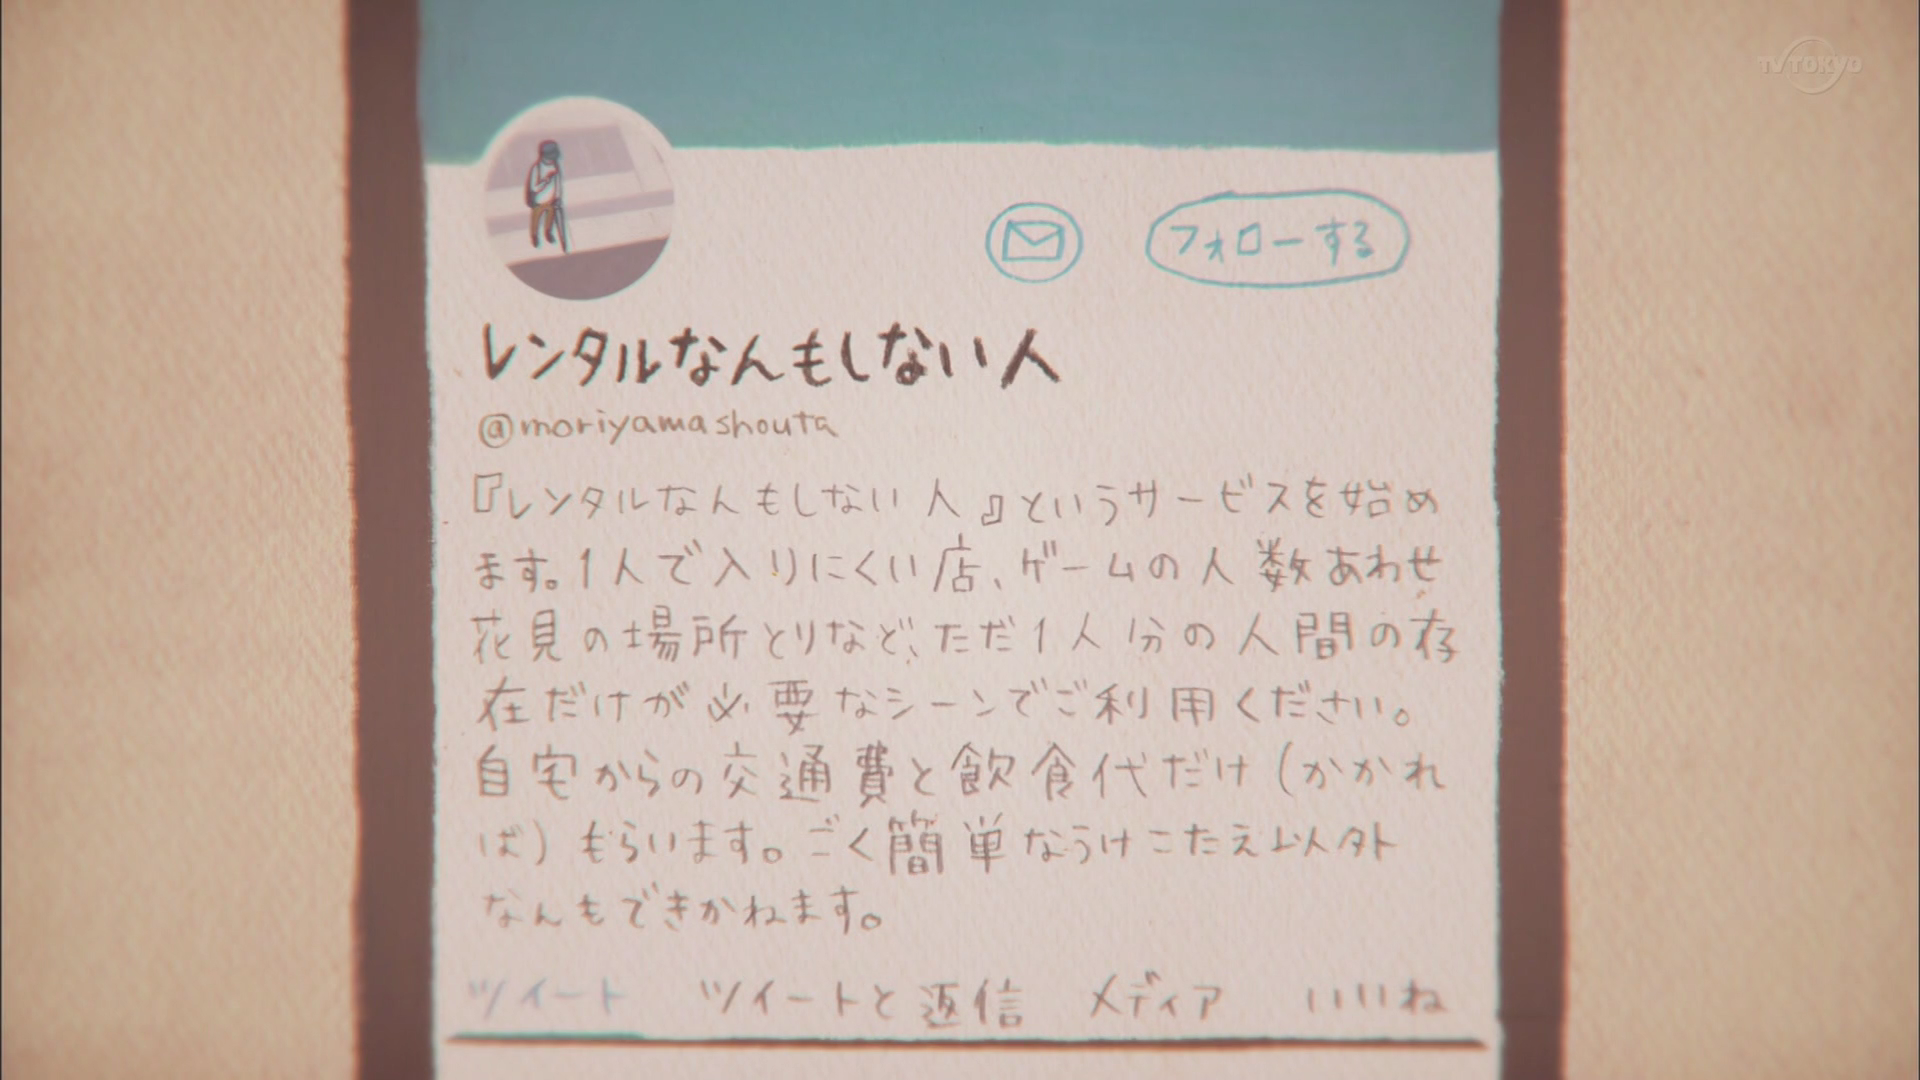 TV TOKYO
フォローする
レンタルなんもしない人
@moriyamashouta
『レンタルなんもしない人』というサービスを始め
ます。1人で入りにくい店、ゲームの人数あわせ
花見の場所とりなど、ただ1人分の人間の存
在だけが必要なシーンでご利用ください。
自宅からの交通費と飲食代だけ(かかれ
ば)もらいます。ごく簡単なうけこたえ以外
なんもできかねます。
ツイート ツイートと返信 メディア いいね